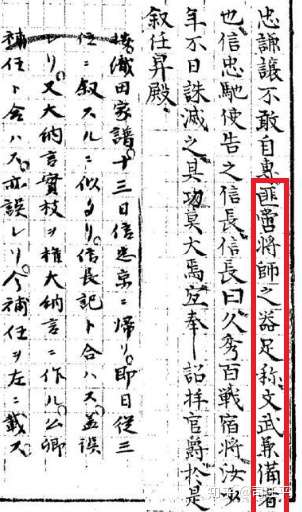 忠謙讓不敢自專匪啻將師之器足稱文武兼備者
也信忠馳使告之信長信長曰久秀百戰宿將汝弱
年不日誅滅之其功莫大焉宜奉 詔拜官爵於是
叙任昇殿
按織田家譜十三日信忠京ニ帰リ即日從三
位ニ叙スルニ似タリ信長記ト合ハス蓋誤
レリ又大納言實枝ヲ權大納言ニ作ル公卿
補任ト合ハス亦誤レリ今補任ヲ左ニ載ス
知乎